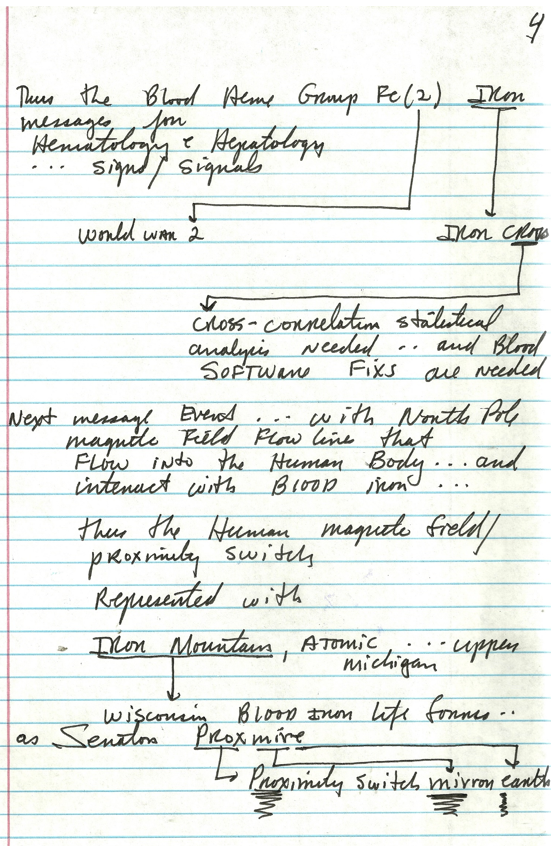 4
Thus the Blood Heme Group Fe(2) Iron
messages for
Hematology & Hepatology
... Signs/Signals
World War 2 Iron Cross
cross-correlation statistical
analysis needed .. and Blood
SOFTWARE FIXS are needed
Next message Event ... with North Pole
magnetic Field Flow line that
FLOW into the Human Body ... and
interact with BLOOD iron ...
thus the Human magnetic field/
proximity switch
Represented with
Iron Mountain, ATOMIC ... upper
michigan
Wisconsin Blood Iron life forms ..
as Senator Proxmire
Proximity switch mirror earth